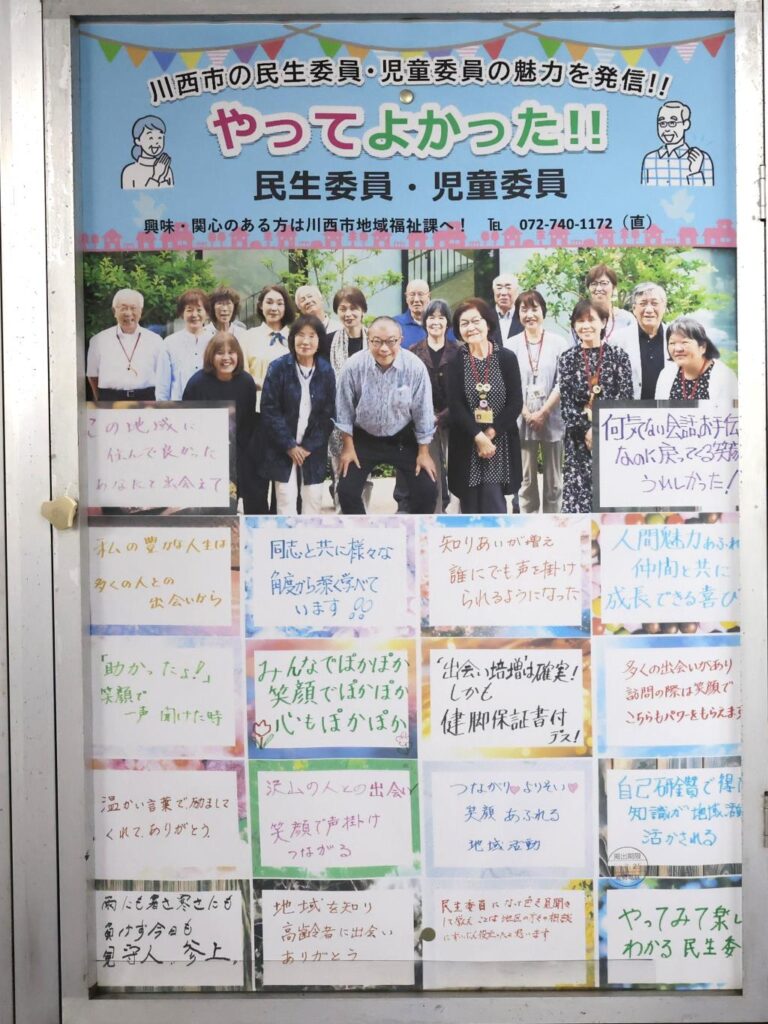 川西市の民生委員・児童委員の魅力を発信!!
やってよかった!!
民生委員・児童委員
興味・関心のある方は川西市地域福祉課へ! ℡ 072-740-1172（直）
この地域に
住んで良かった
あなたと出会えて
何気ない会話、お手伝
なのに戻ってくる笑顔
うれしかった!
私の豊かな人生は
多くの人との
出会いから
同志と共に様々な
角度から深く学べて
います
知りあいが増え
誰にでも声を掛け
られるようになった
人間魅力あふれ
仲間と共に
成長できる喜び
「助かったよ!」
笑顔で
一声 聞けた時
みんなでぽかぽか
笑顔でぽかぽか
心もぽかぽか
"出会い倍増"は確実!
しかも
健脚保証書付
デス!
多くの出会いがあり
訪問の際は笑顔で
こちらもパワーをもらえます
温かい言葉で励まして
くれて、ありがとう
沢山の人との出会い
笑顔で声掛け
つながる
つながり♥よりそい♥
笑顔 あふれる
地域活動
自己研鑽で得
知識が地域活
活かされる
掲出期限
雨にも暑さ寒さにも
負けず今日も
見守人、参上。
地域を知り
高齢者に出会い
ありがとう
民生委員になって
ことは地区の
やってみて楽し
わかる 民生委